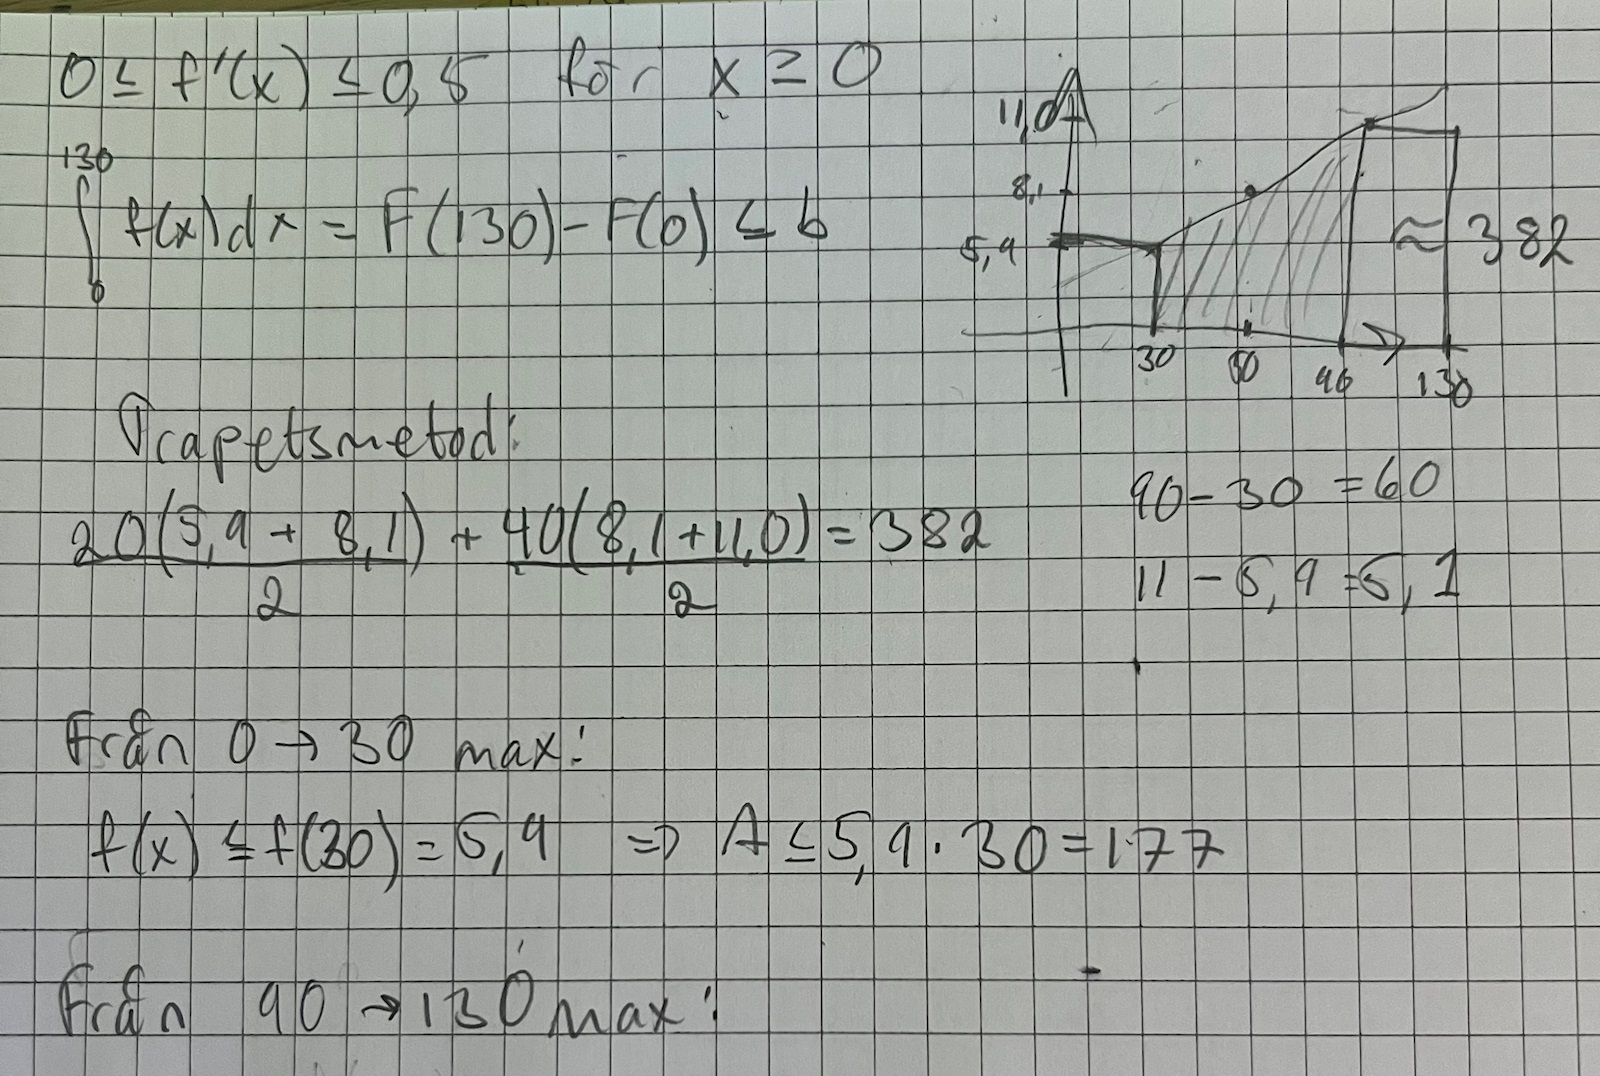 0 ≤ f'(x) ≤ 0,5 för x ≥ 0
130
∫ f(x)dx = F(130) - F(0) ≤ b
0
11,0
8,1
5,9
≈ 382
30 50 90 130
Trapetsmetod:
20(5,9 + 8,1)/2 + 40(8,1 + 11,0)/2 = 382
90 - 30 = 60
11 - 5,9 = 5,1
Från 0 → 30 max:
f(x) ≤ f(30) = 5,9 => A ≤ 5,9 · 30 = 177
Från 90 → 130 max: